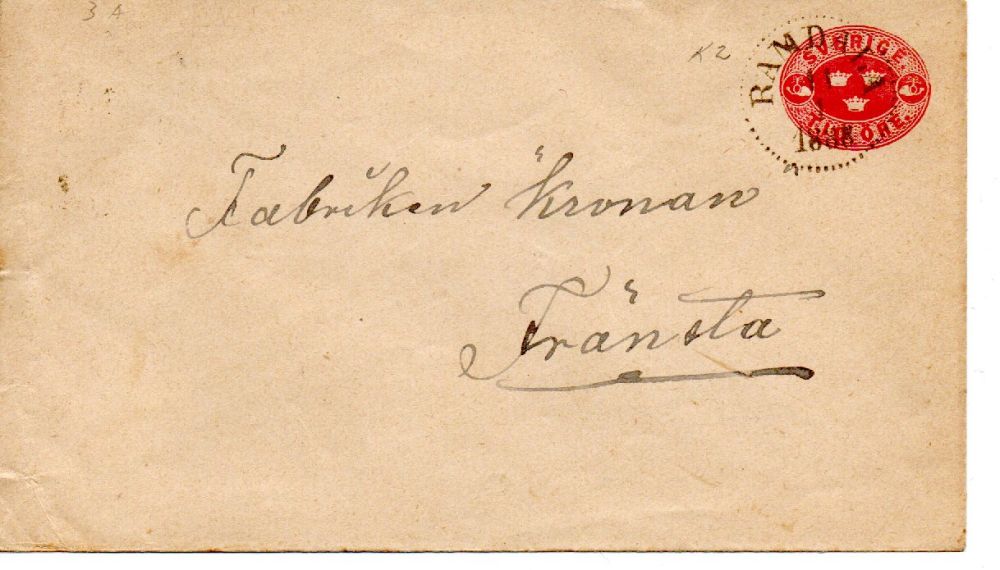 3 A
K2
SVERIGE.
TIO ÖRE.
Fabriken Kronan
Fränsta